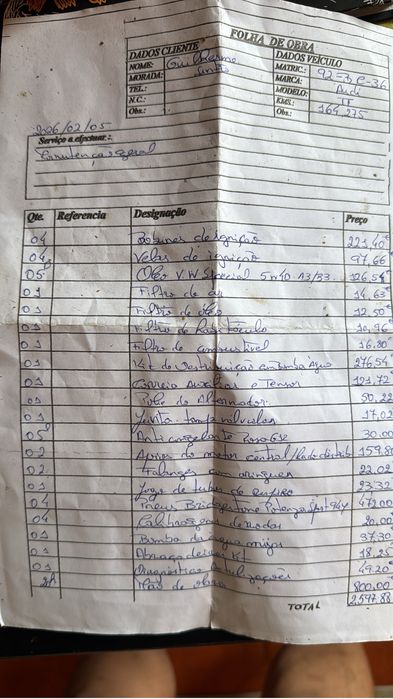 FOLHA DE OBRA
DADOS CLIENTE DADOS VEÍCULO
NOME: Guilherme MATRIC.: 92-30-36
MORADA: MARCA: Audi
TEL.: MODELO: TT
N.C.: KMS.: 164 275
Obs.: Obs.:
2026/02/05
Serviço a efectuar.:
Qte. Referencia Designação Preço
04 Bobines de ignição 221,40€
04 Velas de ignição 97,66€
05 Oleo V.W Special 5W40 126,54€
01 Filtro de ar 14,63€
01 Filtro de oleo 12,50€
01 Filtro de habitáculo 10,96€
01 Filtro de combustivel 16,80€
01 Kit de Destribuição com bomba agua 276,54€
01 Correia Auxiliar e Tensor 121,72€
01 Polie do Alternador 50,22
01 Junta tampa valvulas 17,02
05 Anticongelante Roso G12 30,00
02 Apoios do motor central/lado distrib 159,80
02 22,02
01 Jogo de tubos de 23,32
04 Pneus Bridgestone Potenza 472,00
04 Calibragem de rodas 20,00
01 Bomba da agua 37,30
01 Abraçadeiras Kit 18,25
01 Diagnóstico 49,20€
Mão de obra 800,00€
TOTAL 2.597,88